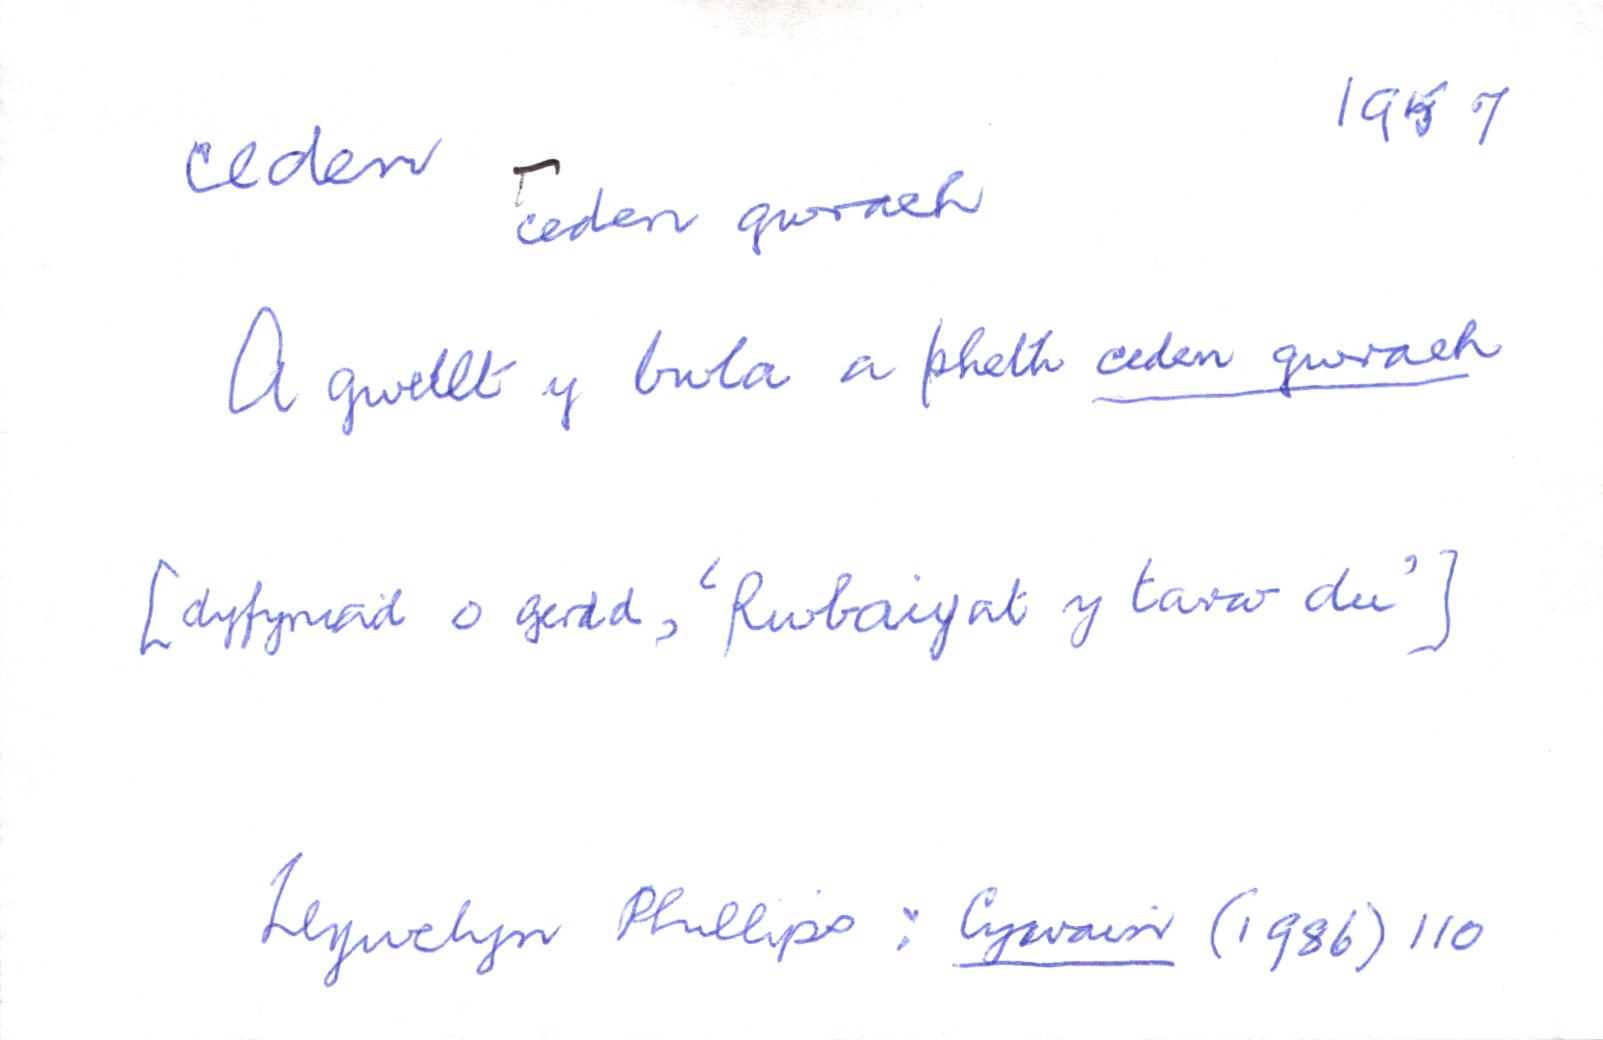 1957
ceden
ceden gwrach
A gwellt y bwla a pheth ceden gwrach
[dyfyniad o gerdd, 'Rwbaiyat y tarw du']
Llywelyn Phillips : Cywain (1986) 110